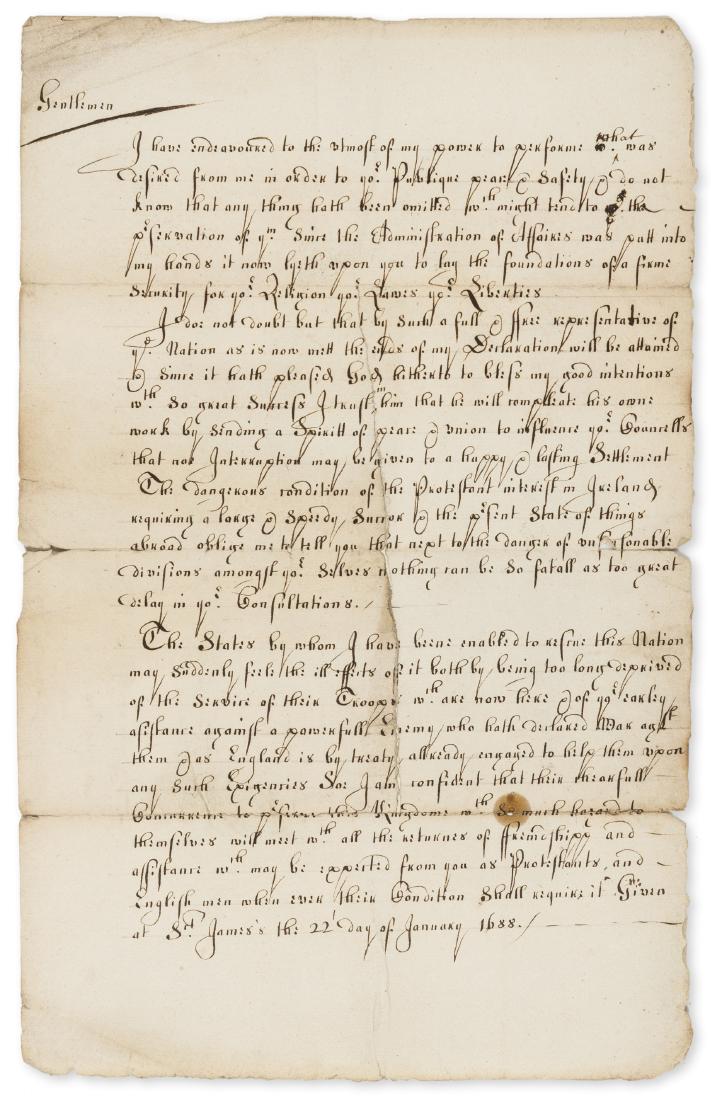 Gentlemen
I have endeavoured to the vtmost of my power to performe what was
desired from me in order to yor Publique peace & Safety & do not
know that any thing hath been omitted wth might tend to the
pservation of ym Since the Administration of Affaires was putt into
my hands it now lyeth vpon you to lay the foundations of a firme
Security for yor Religion yor Lawes yor Liberties
I doe not doubt but that by Such a full & ffree representative of
ye Nation as is now mett the ends of my Declaration will be attained
& Since it hath pleased God hitherto to bless my good intentions
wth So great Success I trust in him that he will compleate his owne
work by Sending a Spiritt of peace & vnion to influence yor Councells
that noe Interruption may be given to a happy & lasting Settlement
The dangerous condition of the Protestant interest in Ireland
requiring a large & Speedy Succor & the psent State of things
abroad oblige me to tell you that next to the danger of vnseasonable
divisions amongst yor Selves nothing can be So fatall as too great
delay in yor Consultations./
The States by whom I have beene enabled to rescue this Nation
may Suddenly feele the ill effects of it both by being too long deprived
of the Service of their Troops wth are now here & of yor earley
asistance against a powerfull Enemy who hath declared War agst
them & as England is by treaty allready engaged to help them vpon
any Such Exigencies Soe I am confident that their chearfull
Concurrence to pserve this Kingdome wth So much hazard to
themselves will meet wth all the returnes of ffreindshipp and
assistance wth may be expected from you as Protestants, and
English men when ever their Condition Shall require it Given
at St James's the 22t day of January 1688./